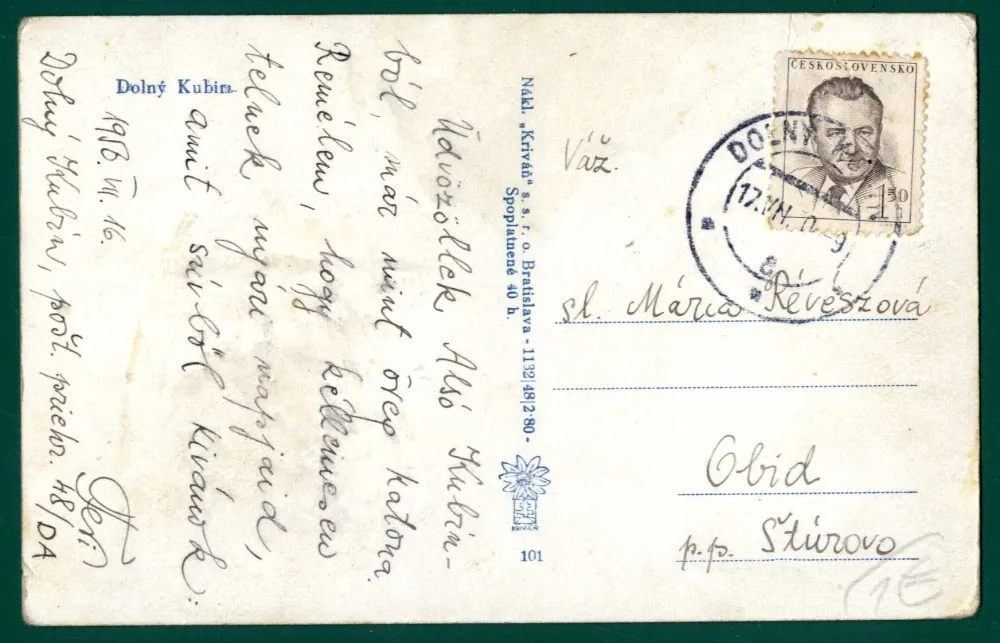 Dolný Kubin
Üdvözöllek Alsó Kubin-
ból, már mint öreg katona.
Remélem, hogy kellemesen
telnek nyári napjaid,
amit szívből kívánok:
Feri
Dolný Kubin, pošt. priehr. 48/DA
Nákl. „Kriváň" s. s. r. o. Bratislava - 1132|48|2·80 -
Spoplatnené 40 h.
101
ČESKOSLOVENSKO
1 50
DOLNÝ
17.VII.
Váž.
sl. Mária Révészová
Obid
p.p. Štúrovo
1€